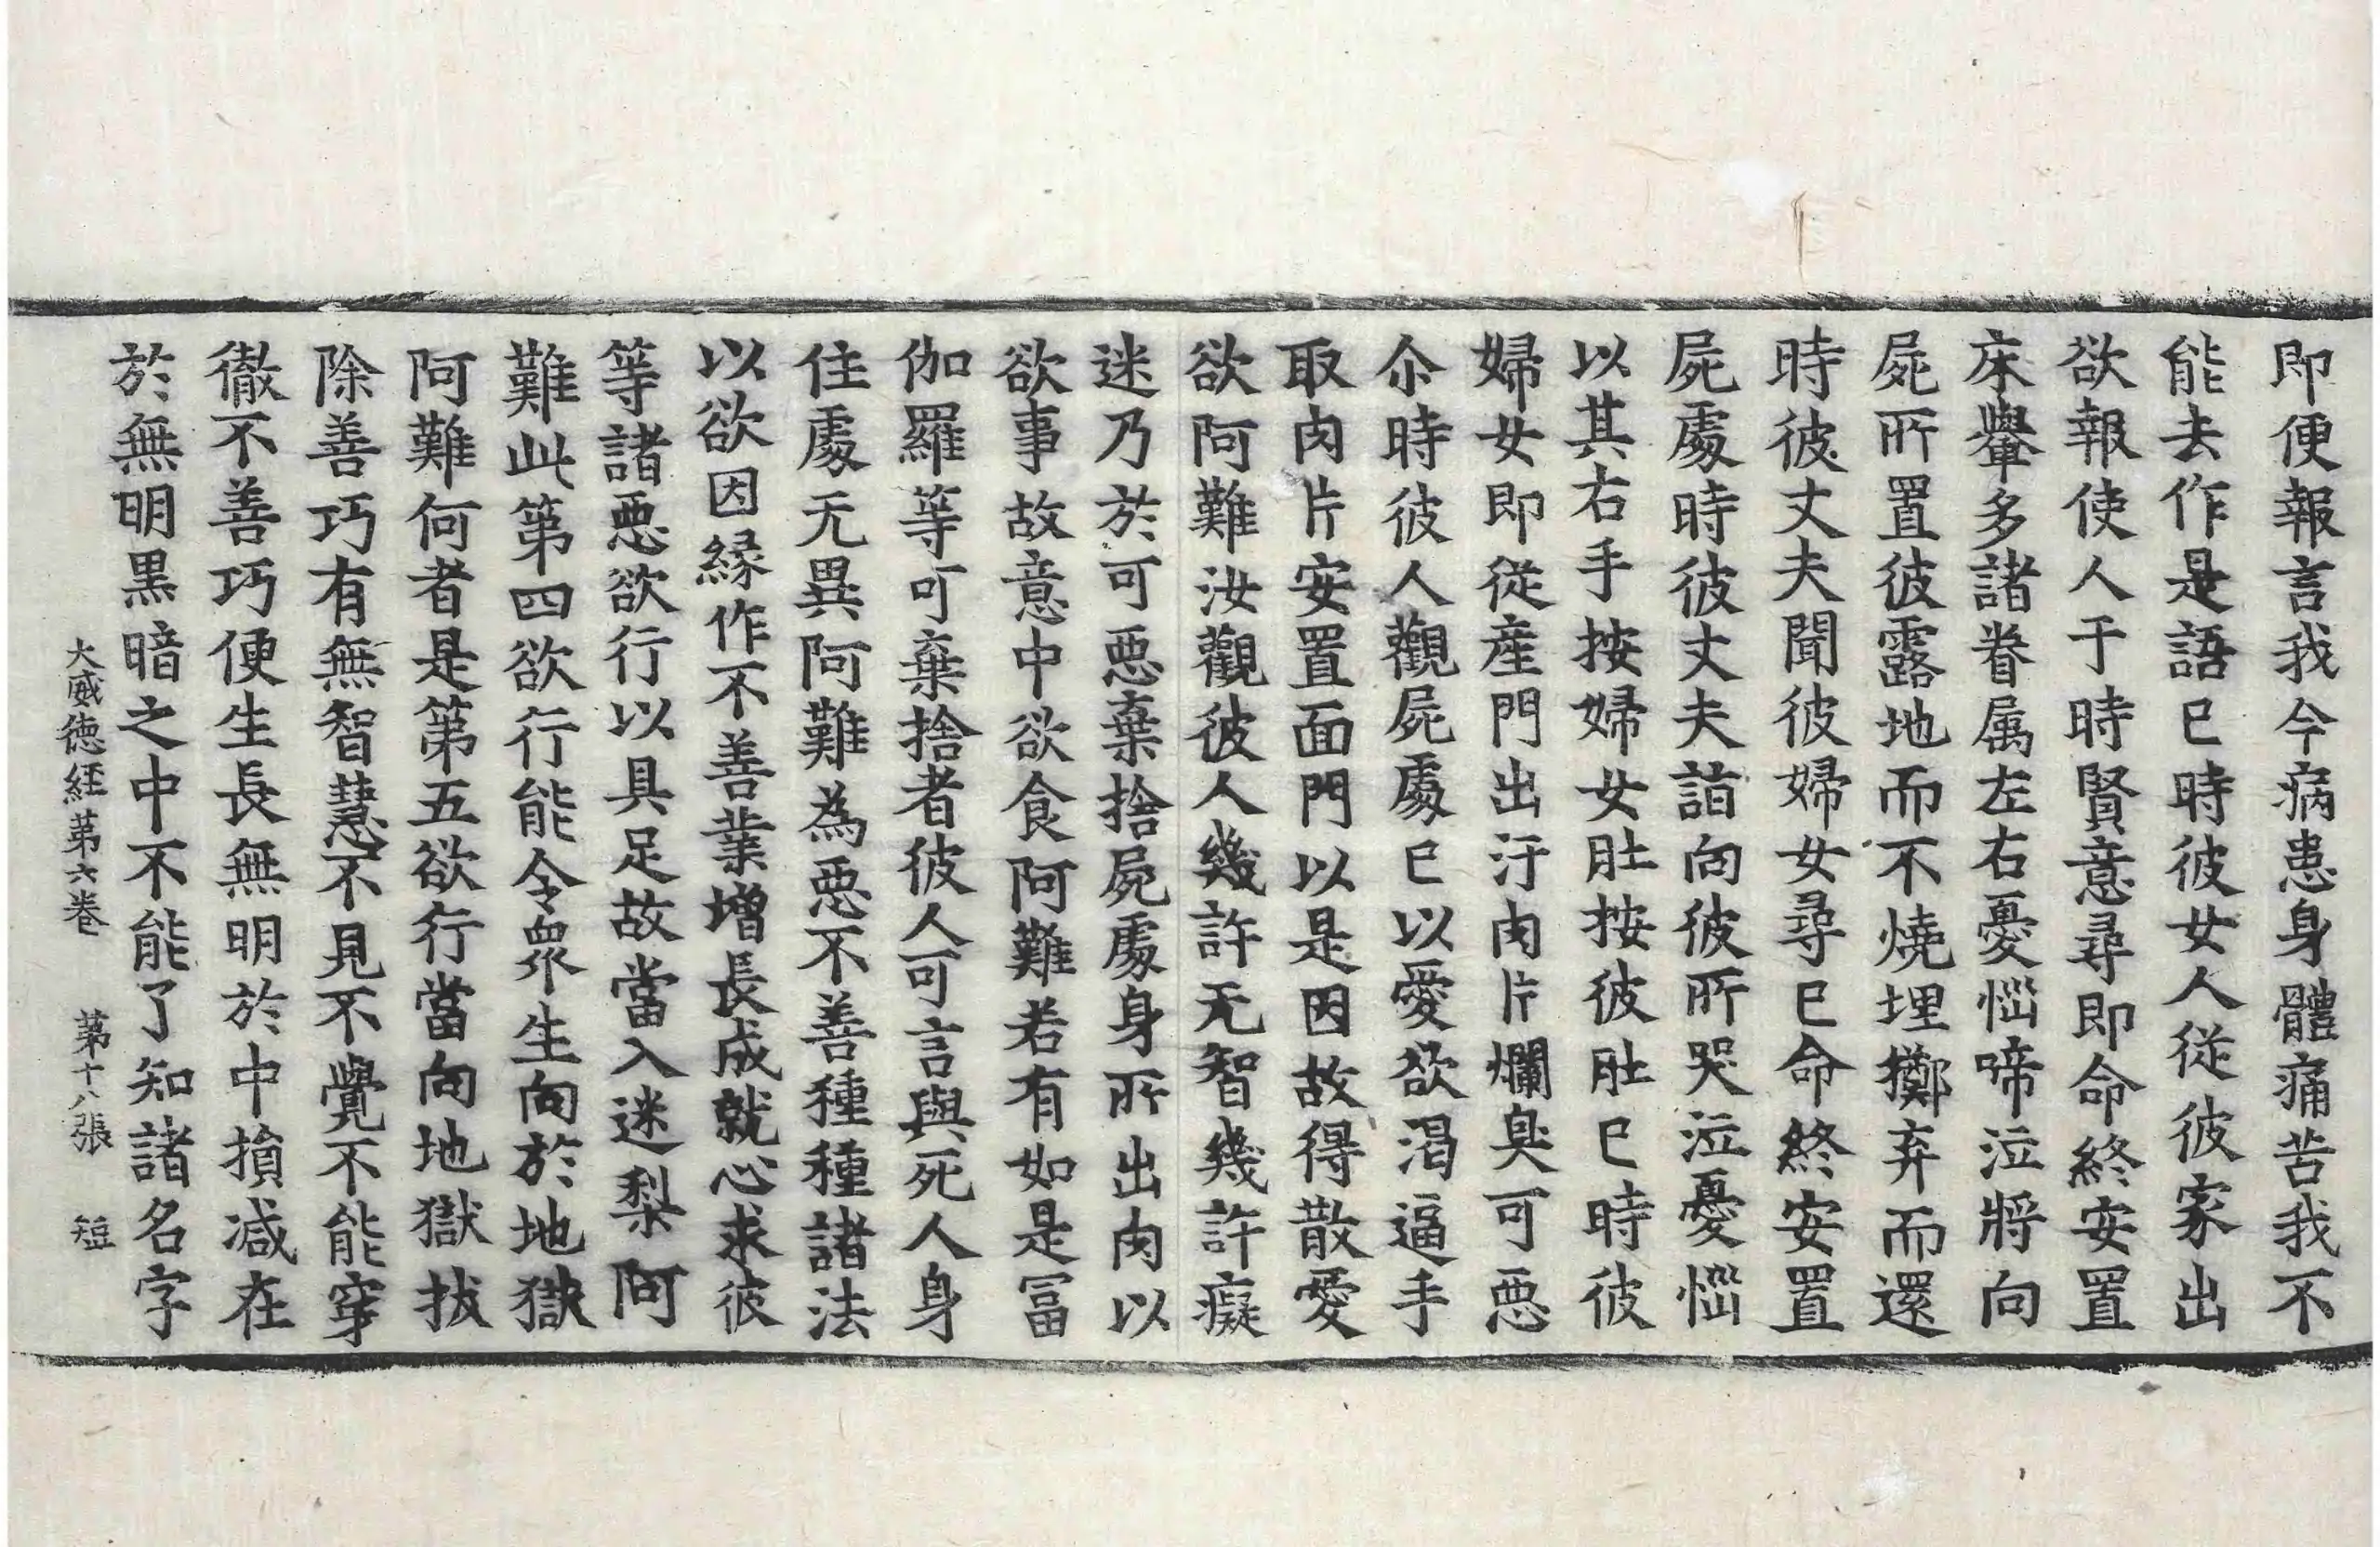 即便報言我今病患身體痛苦我不
能去作是語已時彼女人従彼家出
欲報使人于時賢意尋即命終安置
床轝多諸眷属左右憂惱啼泣將向
屍所置彼露地而不燒埋擲弃而還
時彼丈夫聞彼婦女尋已命終安置
屍處時彼丈夫詣向彼所哭泣憂惱
以其右手按婦女肚按彼肚已時彼
婦女即従産門出汙肉片爛臭可悪
尒時彼人觀屍處已以愛欲渇逼手
取肉片安置面門以是因故得散愛
欲阿難汝觀彼人幾許无智幾許癡
迷乃於可悪棄捨屍處身所出肉以
欲事故意中欲食阿難若有如是冨
伽羅等可棄捨者彼人可言與死人身
住處无異阿難為悪不善種種諸法
以欲因緣作不善業增長成就心求彼
等諸悪欲行以具足故當入迷梨阿
難此第四欲行能令衆生向於地獄
阿難何者是第五欲行當向地獄拔
除善巧有無智慧不見不覺不能穿
徹不善巧便生長無明於中損减在
於無明黒暗之中不能了知諸名字
大威德経第六卷 第十八張 短